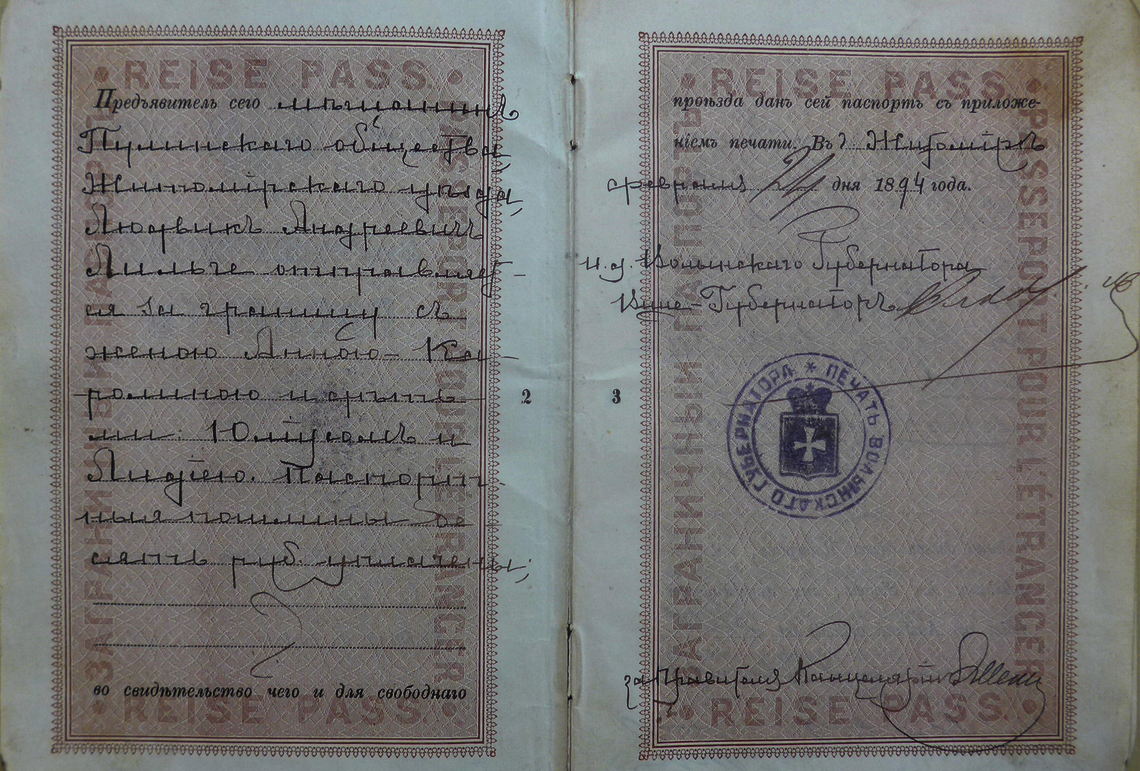 REISE PASS.
ЗАГРАНИЧНЫЙ ПАСПОРТЪ
PASSEPORT POUR L'ÉTRANCER
Предъявитель сего мѣщанинъ
Пулинскаго общества,
Житомірскаго уѣзда,
Людвикъ Андреевичъ
Лильге отправляет-
ся за границу съ
женою Анною-Ка-
ролиною и дѣтъ-
ми Юліусомъ и
Лидіею. Паспорт-
ныя пошлины де
сять руб. уплачены;
во свидѣтельство чего и для свободнаго
REISE PASS.
2
REISE PASS.
ЗАГРАНИЧНЫЙ ПАСПОРТЪ
PASSEPORT POUR L'ÉTRANCER
проѣзда данъ сей паспортъ съ приложе-
ніемъ печати. Въ Житомірѣ
февраля дня 1894 года.
И. д. Волынскаго Губернатора
Вице-Губернаторъ
ПЕЧАТЬ ВОЛЫНСКАГО ГУБЕРНАТОРА
3
за Правителя Канцеляріи
REISE PASS.